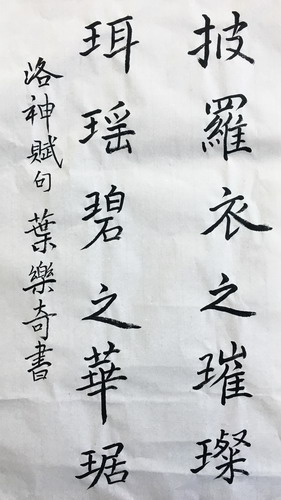 披羅衣之璀璨
珥瑶碧之華琚
洛神賦句 葉樂奇書